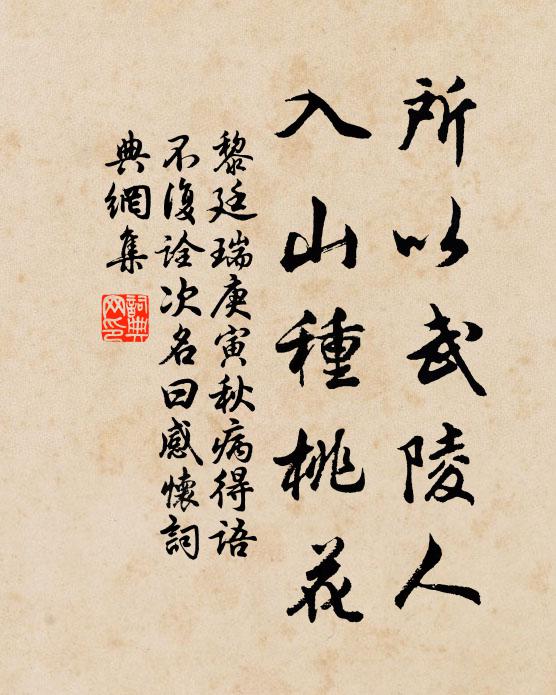 所以武陵人
入山種桃花
黎廷瑞庚寅秋病得语
不復诠次名曰感懷詞
典網集
詞典
网印